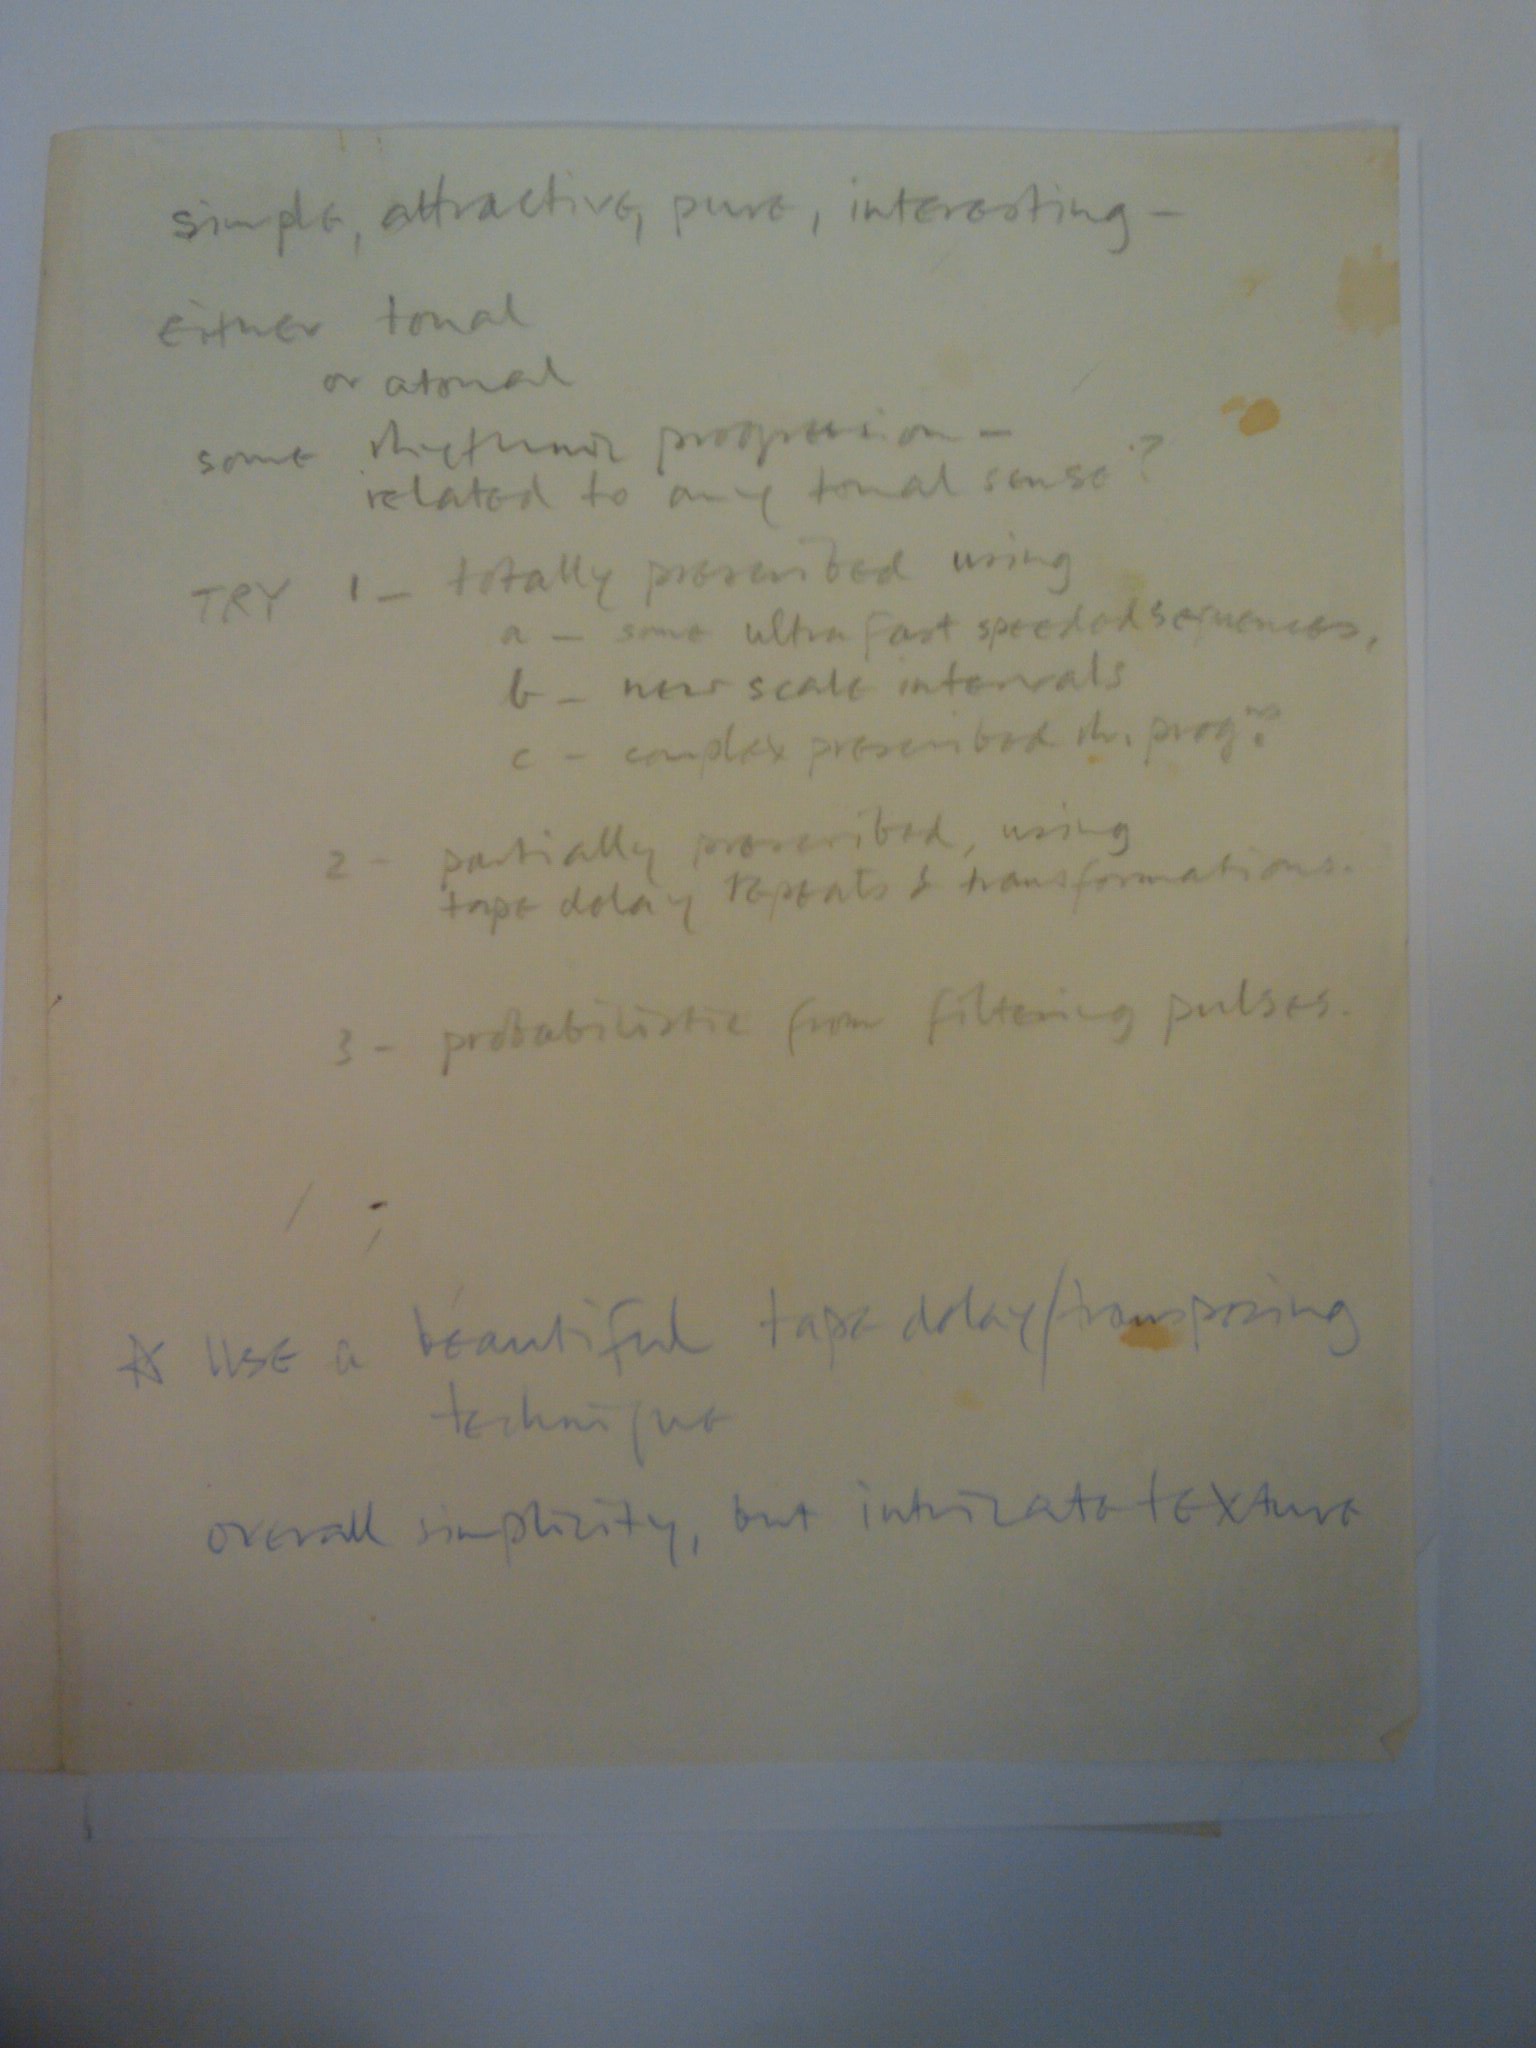 simple, attractive, pure, interesting -
either tonal
or atonal
some rhythmic progression -
related to any tonal sense?
TRY 1 - totally prescribed using
a - some ultra fast speeded sequences,
b - new scale intervals
c - complex prescribed rh. prog ns?
2 - partially prescribed, using
tape delay repeats & transformations.
3 - probabilistic from filtering pulses.
☆ Use a beautiful tape delay/transposing
technique
overall simplicity, but intricate texture